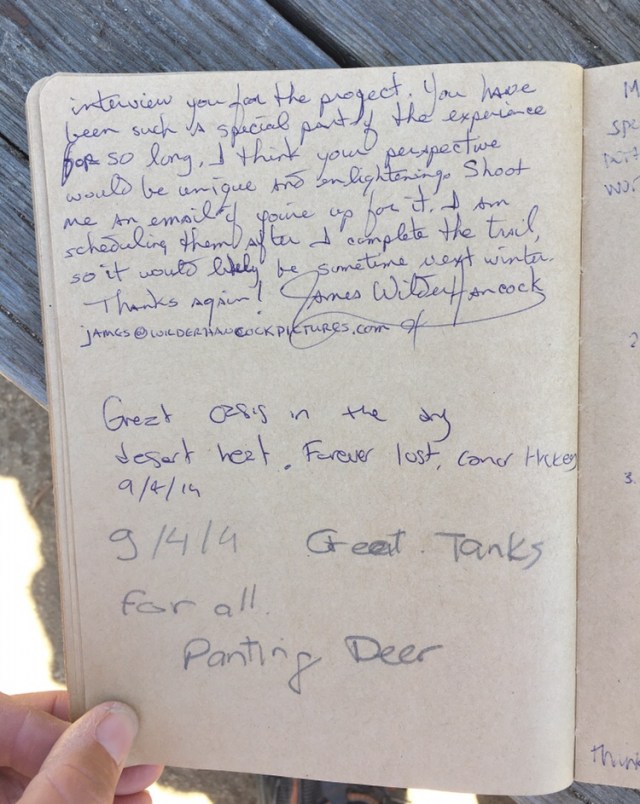 interview you for the project. You have
been such a special part of the experience
for so long, I think your perspective
would be unique and enlightening. Shoot
me an email if you're up for it. I am
scheduling them after I complete the trail,
so it would likely be sometime next winter.
Thanks again! James Wilder Hancock
JAMES@WILDERHANCOCKPICTURES.COM
Great oasis in the dry
desert heat. Forever lost,
9/4/14
9/4/14 Great. Tanks
for all.
Panting Deer
2
3.
think